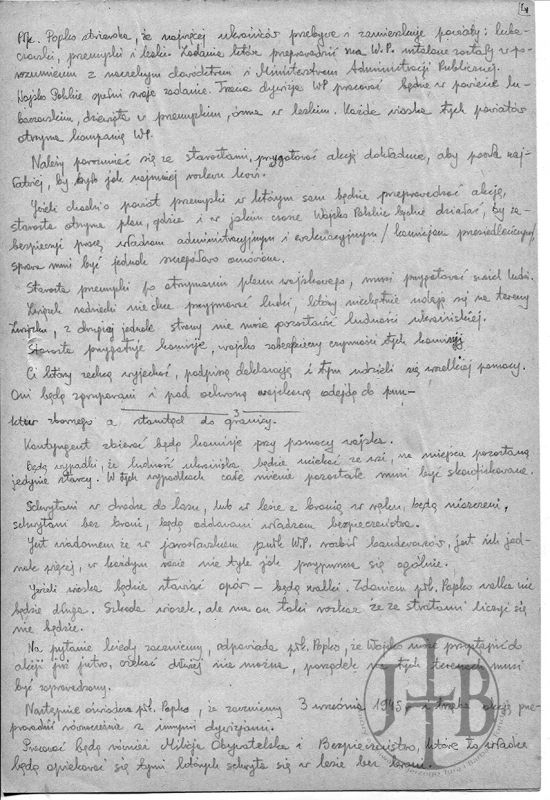 Płk. Popko stwierdza, że najwięcej ukraińców przebywa i zamieszkuje powiaty: luba-
czowski, przemyski i leski. Zadania które przeprowadzić ma W.P. ustalone zostały w po-
rozumieniu z naczelnym dowództwem i Ministerstwem Administracji Publicznej.
Wojsko Polskie spełni swoje zadanie. Trzecia dywizja WP pracować będzie w powiecie lu-
baczowskim, dziewiąta w przemyskim, ósma w leskim. Każda wioska tych powiatów
otrzyma kompanię WP.
Należy porozumieć się ze starostami, przygotować akcję dokładnie, aby poszła naj-
łatwiej, by było jak najmniej rozlewu krwi.
Jeżeli chodzi o powiat przemyski w którym sam będzie przeprowadzać akcję,
starosta otrzyma plan, gdzie i w jakim czasie Wojsko Polskie będzie działać, by za-
bezpieczyć pracę władzom administracyjnym i ewakuacyjnym /komisjom przesiedleńczym/,
sprawa musi być jednak szczegółowo omówiona.
Starosta przemyski po otrzymaniu planu wojskowego, musi przygotować swoich ludzi.
Związek radziecki nie chce przyjmować ludzi, którzy niechętnie udają się na tereny
Związku, z drugiej jednak strony nie może pozostawić ludności ukraińskiej.
Starosta przygotuje komisje, wojsko zabezpieczy czynności tych komisyj
Ci którzy zechcą wyjechać, podpiszą deklarację i tym udzieli się wszelkiej pomocy.
Oni będą zgrupowani i pod ochroną wojskową odejdą do pun-
3
któw zbornego a stamtąd do granicy.
Kontyngent zbierać będą komisje przy pomocy wojska.
Będą wypadki, że ludność ukraińska będzie uciekać ze wsi, na miejscu pozostaną
jedynie starcy. W tych wypadkach całe mienie pozostałe musi być skonfiskowane.
Schwytani w drodze do lasu, lub w lesie z bronią w ręku, będą niszczeni,
schwytani bez broni, będą oddawani władzom bezpieczeństwa.
Jest wiadomem że w jarosławskim pułk W.P. rozbił banderowców, jest ich jed-
nak więcej, w każdym razie nie tyle jak przypuszcza się ogólnie.
Jeżeli wioska będzie stawiać opór – będą walki. Zdaniem płk. Popko walka nie
będzie długa. Szkoda wiosek, ale ma on taki rozkaz że ze stratami liczyć się
nie będzie.
Na pytanie kiedy zaczniemy, odpowiada płk. Popko, że Wojsko może przystąpić do
akcji już jutro, czekać dłużej nie można, porządek na tych terenach musi
być zaprowadzony.
Następnie oświadcza płk. Popko, że zaczniemy 3 września 1945, i trzeba akcję prze-
prowadzić równocześnie z innymi dywizjami.
Pracować będą również Milicja Obywatelska i Bezpieczeństwo, które to władze
będą opiekować się tymi których schwyta się w lesie bez broni.
J B